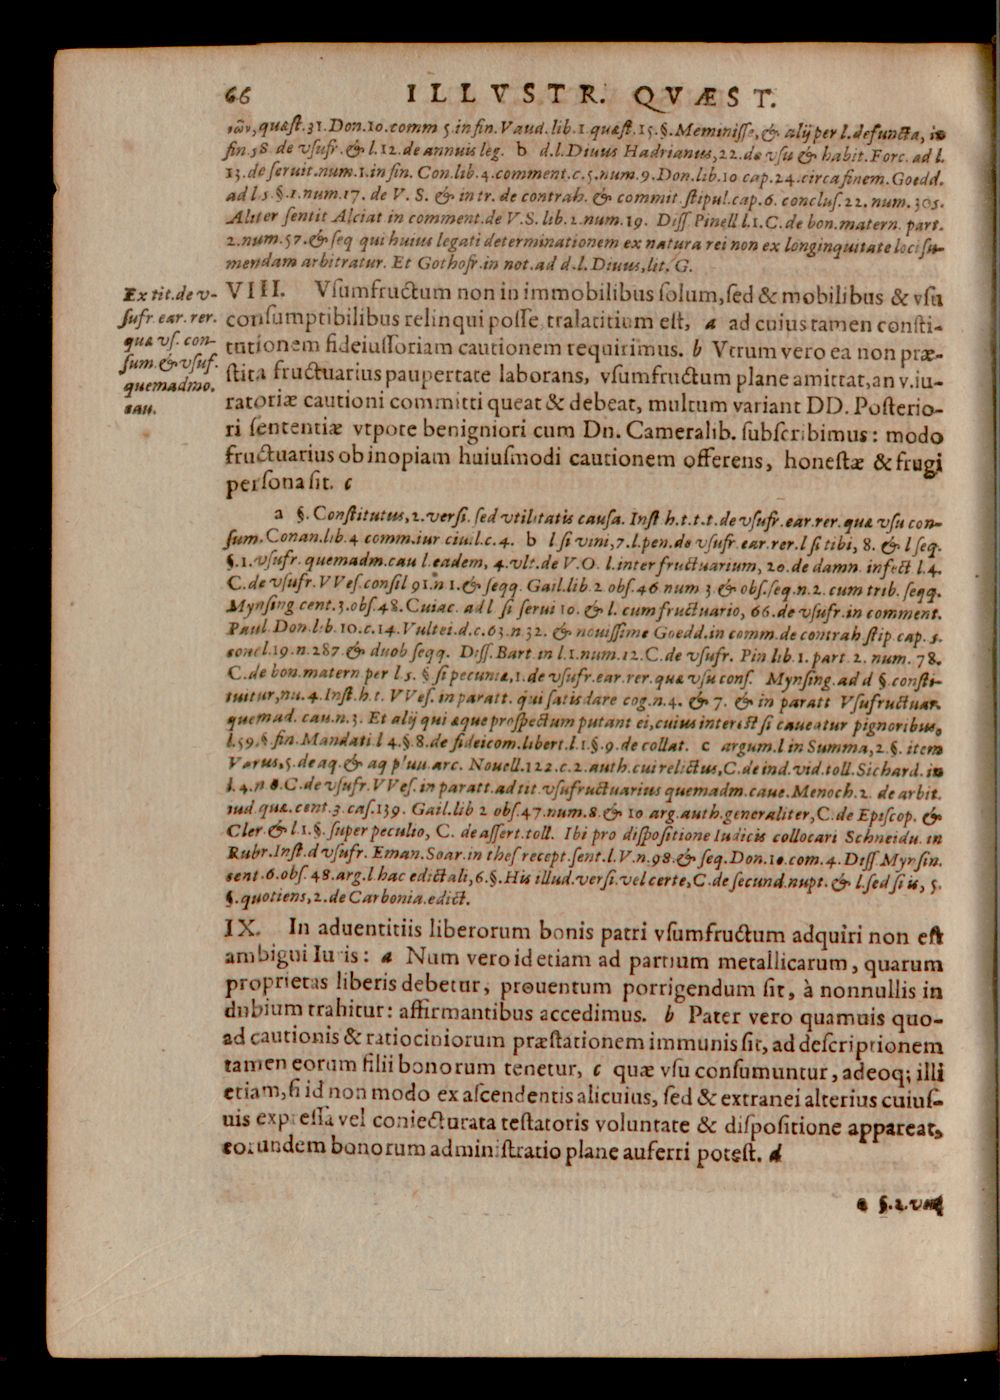 66 ILLVSTR. QVÆST.
ιῶν, quæst. 31. Don. 10. comm 5. in fin. Vaud. lib. 1. quæst. 15. §. Meminisse, & alij per l. defuncta, in
fin. 58. de vsufr. & l. 12. de annuis leg. b d. l. Diuus Hadrianus, 22. de vsu & habit. Forc. ad l.
13. de seruit. num. 1. in fin. Con. lib. 4. comment. c. 5. num. 9. Don. lib. 10 cap. 24. circa finem. Goedd.
ad l. 5. §. 1. num. 17. de V. S. & in tr. de contrah. & commit. stipul. cap. 6. conclus. 22. num. 305.
Aliter sentit Alciat in comment. de V. S. lib. 2. num. 19. Diss. Pinell l. 1. C. de bon. matern. part.
2. num. 57. & seq qui huius legati determinationem ex natura rei non ex longinquitate loci su-
mendam arbitratur. Et Gothofr. in not. ad d. l. Diuus, lit. G.
Ex tit. de v-
sufr. ear. rer.
quæ vs. con-
sum. & vsuf.
quemadmo.
cau.
VIII. Vsumfructum non in immobilibus solum, sed & mobilibus & vsu
consumptibilibus relinqui posse, tralatitium est, a ad cuius tamen consti-
tutionem fideiussoriam cautionem requirimus. b Vtrum vero ea non præ-
stita fructuarius paupertate laborans, vsumfructum plane amittat, an v. iu-
ratoriæ cautioni committi queat & debeat, multum variant DD. Posterio-
ri sententiæ vtpote benigniori cum Dn. Cameralib. subscribimus: modo
fructuarius ob inopiam huiusmodi cautionem offerens, honestæ & frugi
persona sit. c
a §. Constitutus, 2. versi. sed vtilitatis causa. Inst h. t. t. t. de vsufr. ear. rer. quæ vsu con-
sum. Conan. lib. 4 comm. iur ciu. l. c. 4. b l si vini, 7. l. pen. de vsufr. ear. rer. l si tibi, 8. & l seq.
§. 1. vsufr. quemadm. cau l. eadem, 4. vlt. de V. O. l. inter fructuarium, 20. de damn. infect l. 4.
C. de vsufr. VVes. consil 91. n 1. & seqq. Gail. lib. 2 obs. 46 num 3 & obs. seq. n. 2. cum trib. seqq.
Mynsing cent. 3. obs. 48. Cuiac. ad l si serui 10. & l. cum fructuario, 66. de vsufr. in comment.
Paul. Don. lib. 10. c. 14. Vultei. d. c. 63. n 32. & nouissime Goedd. in comm. de contrah. stip. cap. 5.
concl. 19. n. 287 & duob seqq. Diss. Bart. in l. 1. num. 12. C. de vsufr. Pin lib. 1. part. 2. num. 78.
C. de bon. matern per l 5. §. si pecuniæ, 1. de vsufr. ear. rer. quæ vsu cons. Mynsing. ad d §. consti-
tuitur, nu. 4. Inst. h. t. VVes. in paratt. qui satisdare cog. n. 4. & 7. & in paratt Vsufructuar.
quemad. cau. n. 3. Et alij qui æque prospectum putant ei, cuius interest si caueatur pignoribus,
l. 59. §. fin. Mandati l 4. §. 8. de fideicom. libert. l. 1. §. 9. de collat. c argum. l in Summa, 2. §. item
Varus, 5. de aq. & aq pluu. arc. Nouell. 122. c. 2. auth. cui relictus, C. de ind. vid. toll. Sichard. in
l. 4. n 8. C. de vsufr. VVes. in paratt. ad tit. vsufructuarius quemadm. caue. Menoch. 2. de arbit.
iud. quæ. cent. 3. cas. 139. Gail. lib 2 obs. 47. num. 8. & 10 arg. auth. generaliter, C. de Episcop. &
Cler. & l. 1. §. super peculio, C. de assert. toll. Ibi pro dispositione Iudicis collocari Schneidu. in
Rubr. Inst. d vsufr. Eman. Soar. in thes. recept. sent. l. V. n. 98. & seq. Don. 10. com. 4. Diss. Mynsin.
cent. 6. obs. 48. arg. l. hac edictali, 6. §. His illud. versi. vel certe, C. de secund. nupt. & l. sed si is, 5.
§. quotiens, 2. de Carbonia. edict.
IX. In aduentitiis liberorum bonis patri vsumfructum adquiri non est
ambigui Iuris: a Num vero id etiam ad partium metallicarum, quarum
proprietas liberis debetur, prouentum porrigendum sit, à nonnullis in
dubium trahitur: affirmantibus accedimus. b Pater vero quamuis quo-
ad cautionis & ratiociniorum præstationem immunis sit, ad descriptionem
tamen eorum filii bonorum tenetur, c quæ vsu consumuntur, adeoq; illi
etiam, si id non modo ex ascendentis alicuius, sed & extranei alterius cuius-
uis expressa vel coniecturata testatoris voluntate & dispositione appareat,
eorundem bonorum administratio plane auferri potest. d
a §. 1. vers